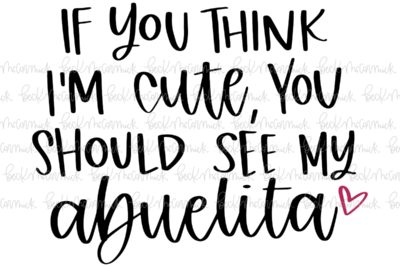 IF YOU THINK
I'M cute, YOU
SHOULD SEE MY
abuelita